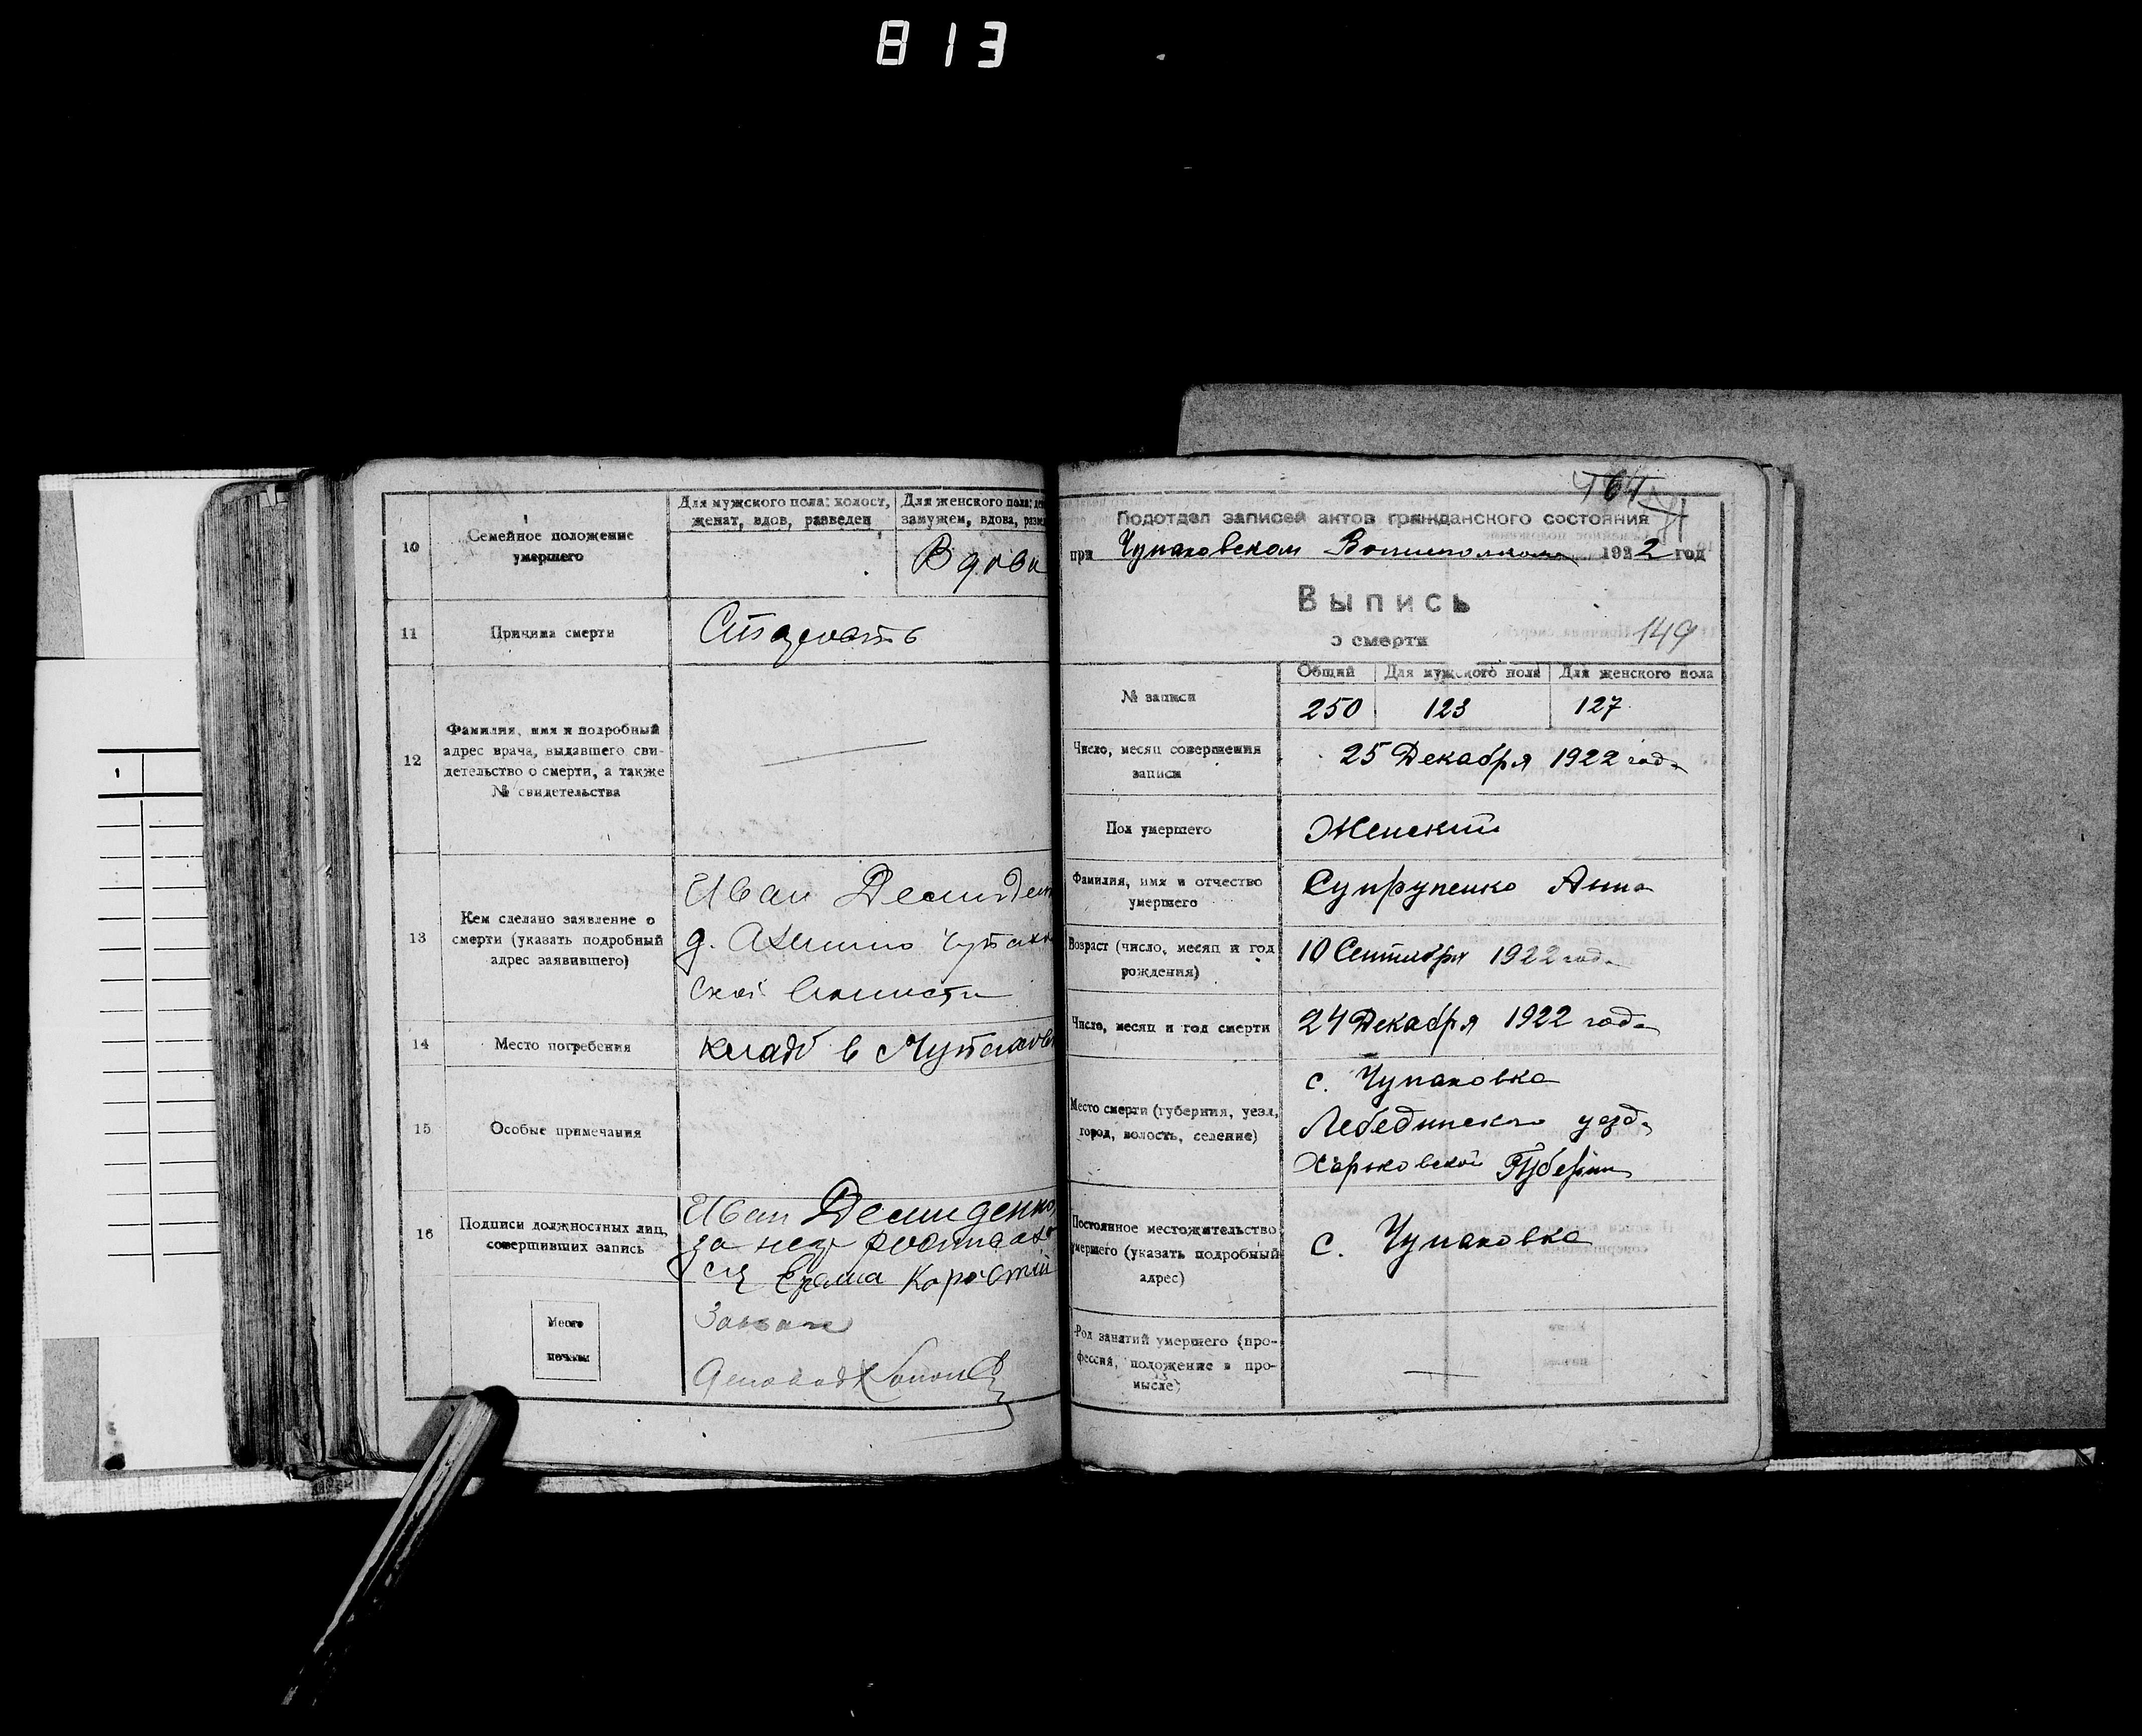 813
10
Семейное положение
умершего
Для мужского пола: холост,
женат, вдов, разведен
Для женского пола:
замужем, вдова,
Вдова
11
Причина смерти
Старость
12
Фамилия, имя и подробный
адрес врача, выдавшего сви-
детельство о смерти, а также
№ свидетельства
13
Кем сделано заявление о
смерти (указать подробный
адрес заявившего)
Иван
д.
ской волости
14
Место погребения
кладб в
15
Особые примечания
16
Подписи должностных лиц,
совершивших запись
Иван Демиденко
за нег
Место
печати
149
Подотдел записей актов гражданского состояния
при Чупаховском 1922 год
Выпись
о смерти
№ записи
Общий
Для мужского пола
Для женского пола
250
123
127
Число, месяц совершения
записи
25 Декабря 1922 года
Пол умершего
Женский
Фамилия, имя и отчество
умершего
Супруненко Анна
Возраст (число, месяц и год
рождения)
10 Сентября 1922 года
Число, месяц и год смерти
24 Декабря 1922 года
Место смерти (губерния, уезд,
город, волость, селение)
с. Чупаховка
Лебединского уезда
Харьковской Губернии
Постоянное местожительство
умершего (указать подробный
адрес)
с. Чупаховка
Род занятий умершего (про-
фессия, положение в про-
мысле)